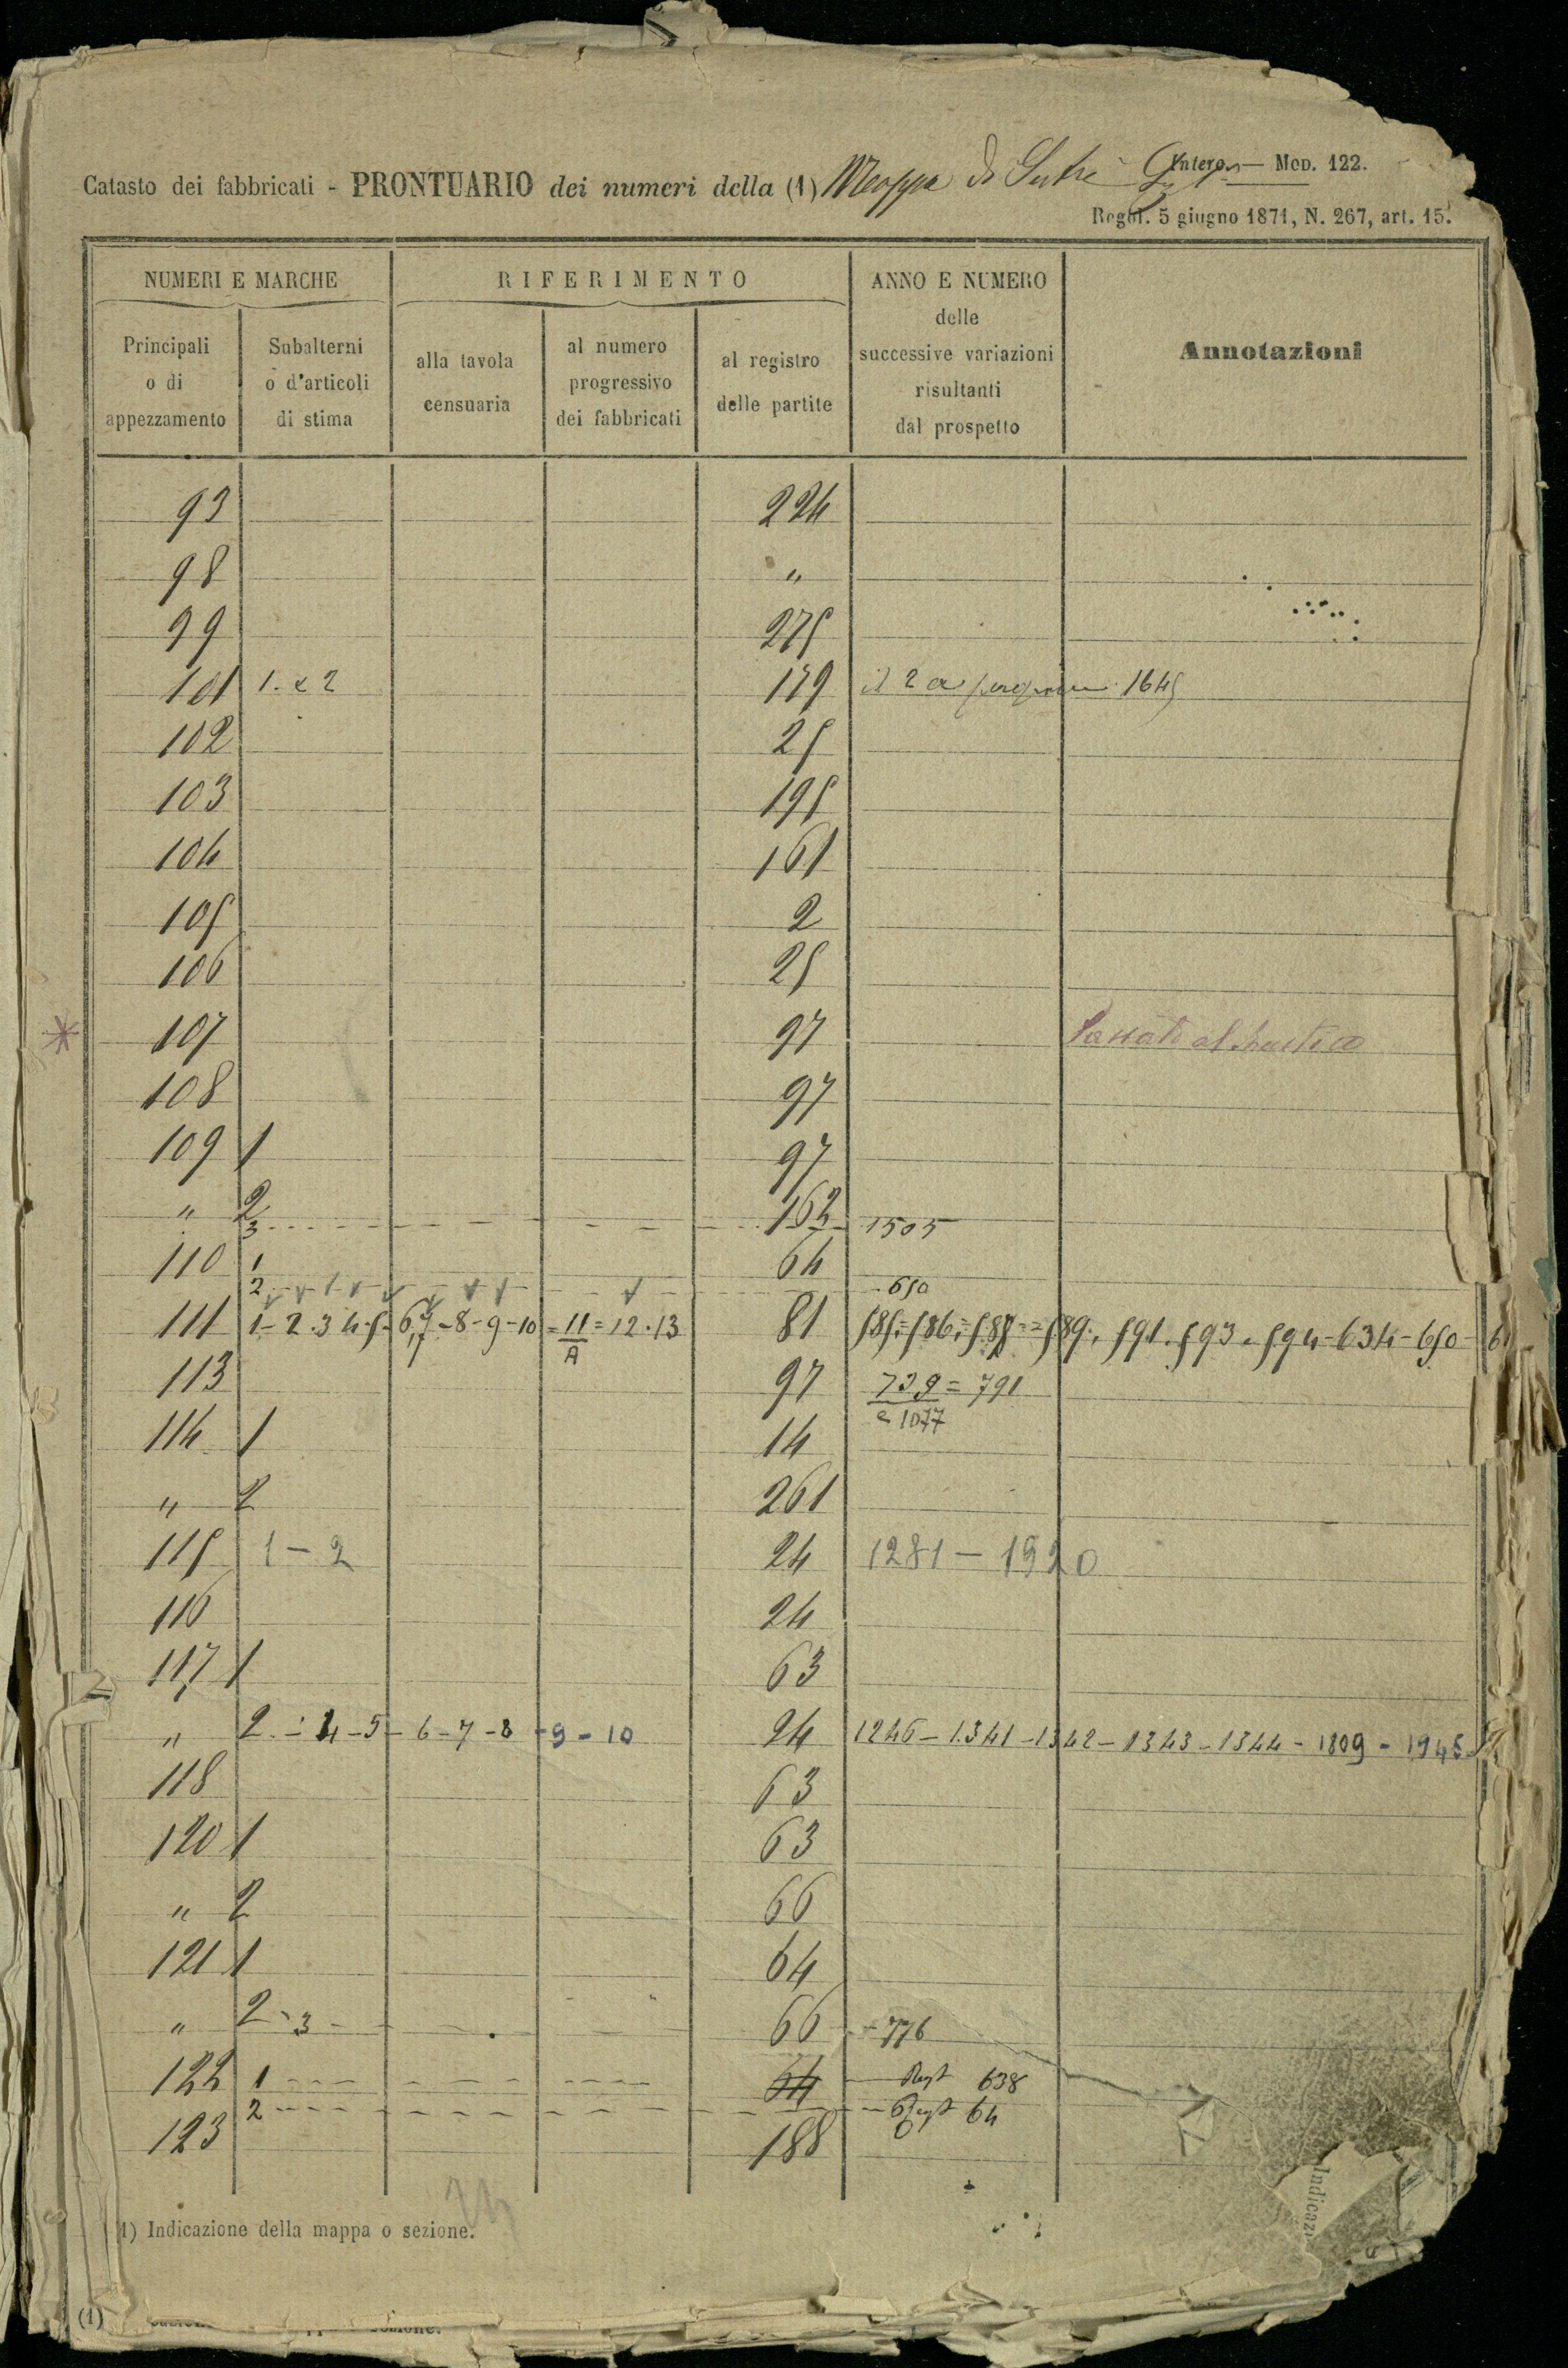 Intero — Mod. 122.
Catasto dei fabbricati - PRONTUARIO dei numeri della (1) Mappa di Sutri
Regol. 5 giugno 1871, N. 267, art. 15.
NUMERI E MARCHE
RIFERIMENTO
ANNO E NUMERO delle successive variazioni risultanti dal prospetto
Annotazioni
Principali o di appezzamento
Subalterni o d'articoli di stima
alla tavola censuaria
al numero progressivo dei fabbricati
al registro delle partite
93 224
98 "
99 275
101 1. e 2 179 il 2 a 1645
102 25
103 195
104 161
105 2
106 25
107 97 Passato al rustico
108 97
109 1 97
" 2 162
3 1505
110 1 64
2 650
111 1-2.3 4-5-6,7-8-9-10=11=12.13 81 585=586=587=589, 591.593.594-634-650-6
A
113 97 739=791
e 1077
114 1 14
" 2 261
115 1-2 24 1281-1920
116 24
117 1 63
" 2-4-5-6-7-8-9-10 24 1246-1341-1342-1343-1344-1809-1945
118 63
120 1 63
" 2 66
121 1 64
" 2-3 66 776
122 1 64 Regt 638
2 Regt 64
123 188
24
1) Indicazione della mappa o sezione.
Indicaz
(1)